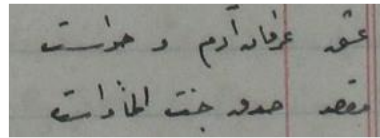 عشق عرفان آدم و حواست
مقصد صدق جنت المأواست